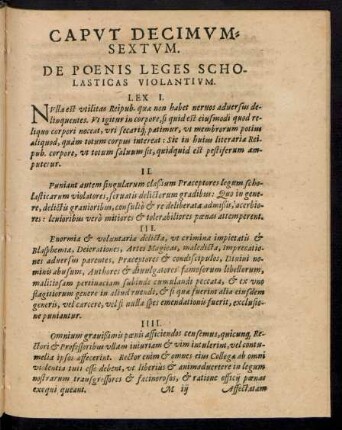 CAPVT DECIMVM-
SEXTVM.
DE POENIS LEGES SCHO-
LASTICAS VIOLANTIVM.
LEX I.
NVlla est vtilitas Reipub. quæ non habet neruos aduersus de-
linquentes. Vt igitur in corpore, si quid est eiusmodi quod re-
liquo corpori noceat, vri secariq; patimur, vt membrorum potius
aliquod, quàm totum corpus intereat: Sic in huius literariæ Rei-
pub. corpore, vt totum saluum sit, quidquid est pestiferum am-
putetur.
II.
Puniant autem singularum classium Præceptores legum scho-
lasticarum violatores, seruatis delictorum gradibus: Quo in gene-
re, delictis grauioribus, consultò & re deliberata admissis, acerbio-
res: leuioribus verò mitiores & tolerabiliores pœnas attemperent.
III.
Enormia & voluntaria delicta, vt crimina impietatis &
Blasphemiæ, Deierationes, Artes Magicas, maledicta, Imprecatio-
nes aduersus parentes, Præceptores & condiscipulos, Diuini no-
minis abusum, Authores & diuulgatores famosorum libellorum,
malitiosam pertinaciam subinde cumulandi peccata, & ex vno
flagitiorum genere in aliud ruendi, & si qua fuerint alia eiusdem
generis, vel carcere, vel si nulla spes emendationis fuerit, exclusio-
ne puniantur.
IIII.
Omnium grauissimis pœnis afficiendos censemus, quicunq; Re-
ctori & Professoribus vllam iniuriam & vim intulerint, vel contu-
melia ipsos affecerint. Rector enim & omnes eius Collegæ ab omni
violentia tuti esse debent, vt liberius & animaduertere in legum
nostrarum transgressores & facinorosos, & ratione officij pœnas
exequi queant. M iij Affectatam